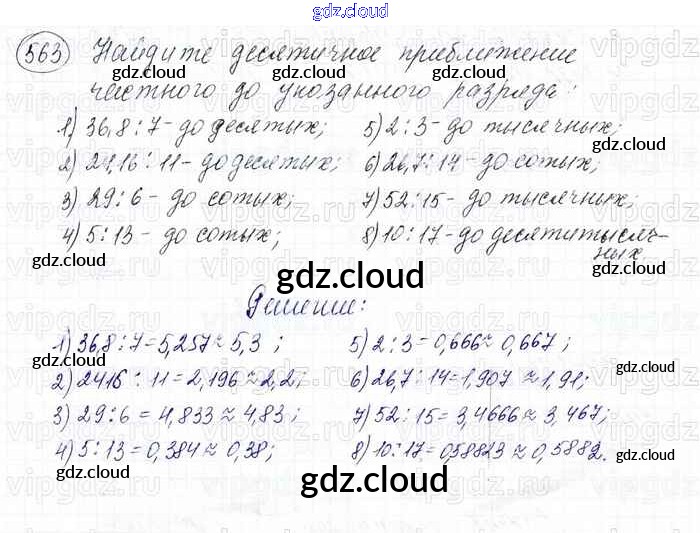 gdz.cloud
563 Найдите десятичное приближение
gdz.cloud gdz.cloud
частного до указанного разряда:
1) 36,8:7 - до десятых; 5) 2:3 - до тысячных;
gdz.cloud gdz.cloud
2) 24,16:11 - до десятых; 6) 26,7:14 - до сотых;
3) 29:6 - до сотых; 7) 52:15 - до тысячных;
4) 5:13 - до сотых; 8) 10:17 - до десятитысяч-
ных.
gdz.cloud gdz.cloud
gdz.cloud
Решение:
1) 36,8:7=5,257≈5,3 ; 5) 2:3=0,666≈0,667 ;
gdz.cloud gdz.cloud
2) 2416:11=2,196≈2,2; 6) 26,7:14=1,907≈1,91;
3) 29:6=4,833≈4,83; 7) 52:15=3,4666≈3,467;
4) 5:13=0,384≈0,38; 8) 10:17=0,58823≈0,5882.
gdz.cloud gdz.cloud
gdz.cloud